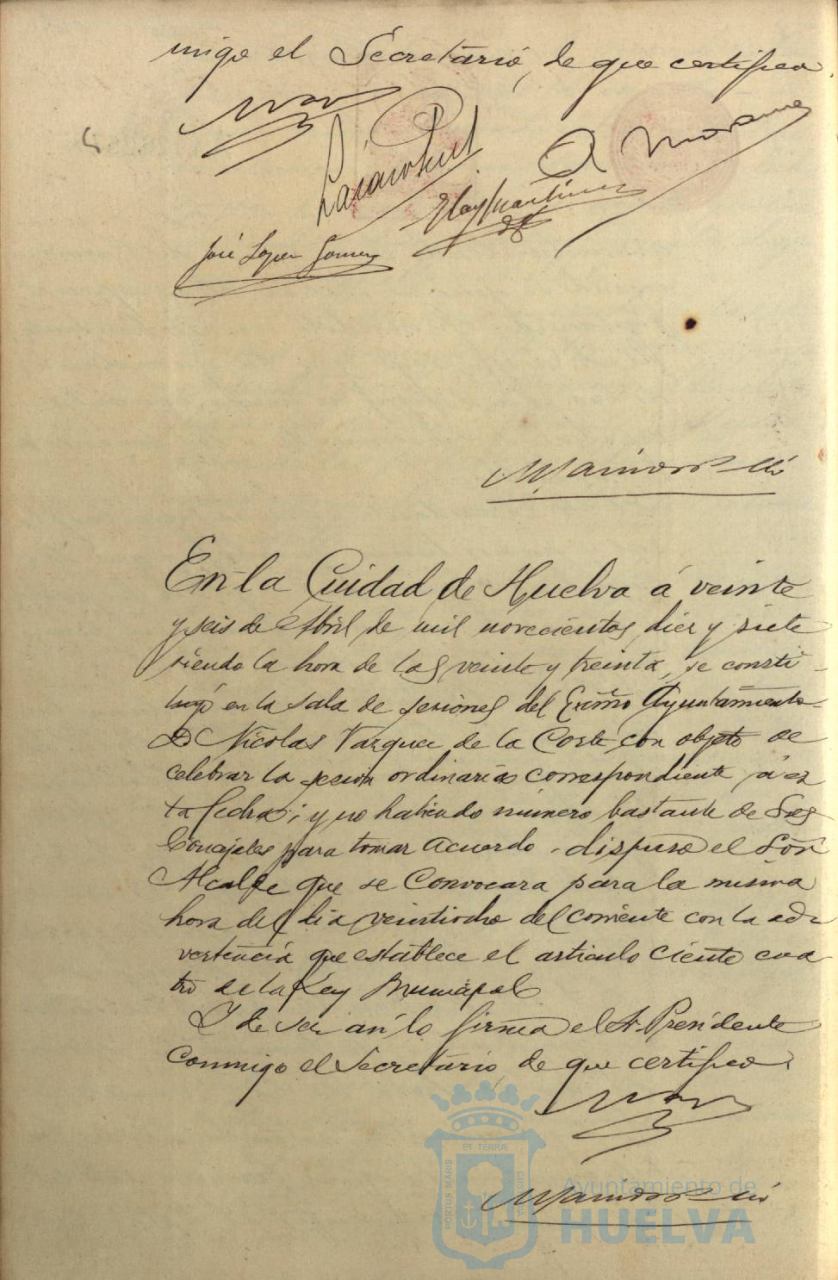 migo el Secretario, de que certifico.
José Lopez Gomez
Eloy Martinez
En la Cuidad de Huelva á veinte
y seis de Abril de mil novecientos diez y siete
siendo la hora de las veinte y treinta, se consti-
tuyó en la sala de sesiones del Exmo Ayuntamiento
D Nicolas Vazquez de la Corte con objeto de
celebrar la sesion ordinaria correspondiente á es
ta fecha; y no habiendo número bastante de Sres
Concejales para tomar acuerdo, dispuso el Señr
Alcalde que se Convocara para la misma
hora del dia veintiocho del corriente con la ad
vertencia que establece el articulo ciento cua
tro de la Ley Municipal
Y de ser asi lo firma el Sr. Presidente
Conmigo el Secretario de que certifico.
ET TERRAE
PORTUS MARIS
CUSTODIA
Ayuntamiento de
HUELVA